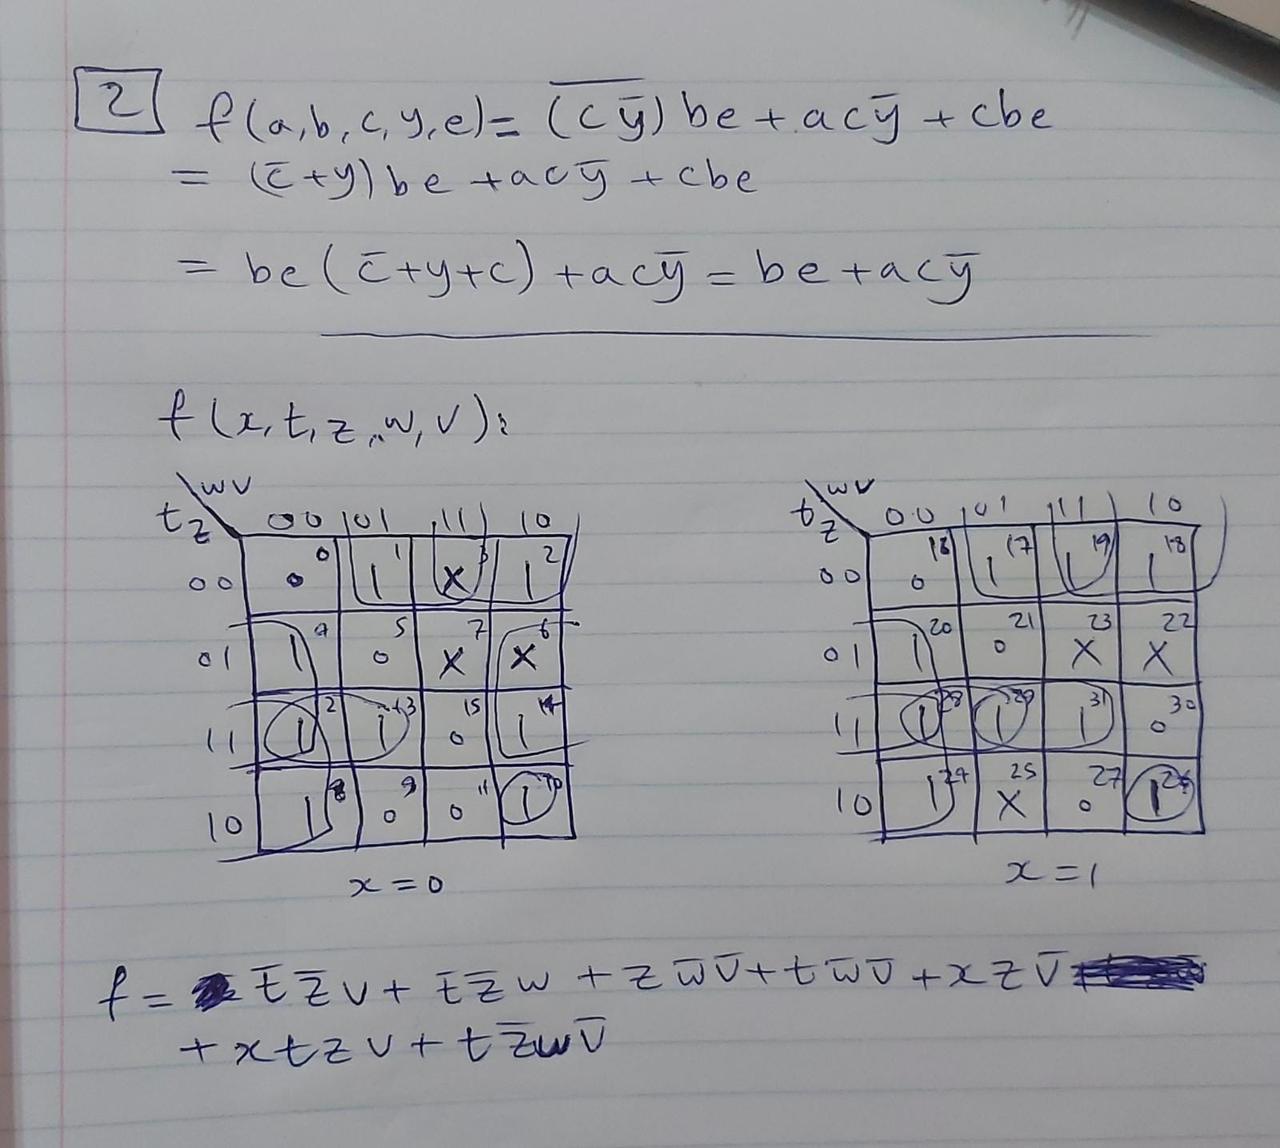 2 f(a,b,c,y,e)= \overline{(cȳ)} be + acȳ + cbe
= (c̄+y)be + acȳ + cbe
= be(c̄+y+c) + acȳ = be + acȳ
f(x,t,z,w,v):
wv
tz 00 01 11 10
00 0 0 1 1 X 3 1 2
01 1 4 0 5 X 7 X 6
11 1 12 1 13 0 15 1 14
10 1 8 0 9 0 11 1 10
x=0
wv
tz 00 01 11 10
00 0 16 1 17 1 19 1 18
01 1 20 0 21 X 23 X 22
11 1 28 1 29 1 31 0 30
10 1 24 X 25 0 27 1 26
x=1
f = t̄z̄v + t̄z̄w + zw̄v̄ + tw̄v̄ + xzv̄
+ xtzv + tz̄wv̄